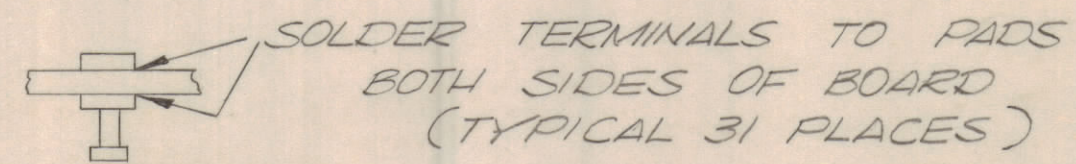 SOLDER TERMINALS TO PADS
BOTH SIDES OF BOARD
(TYPICAL 31 PLACES)